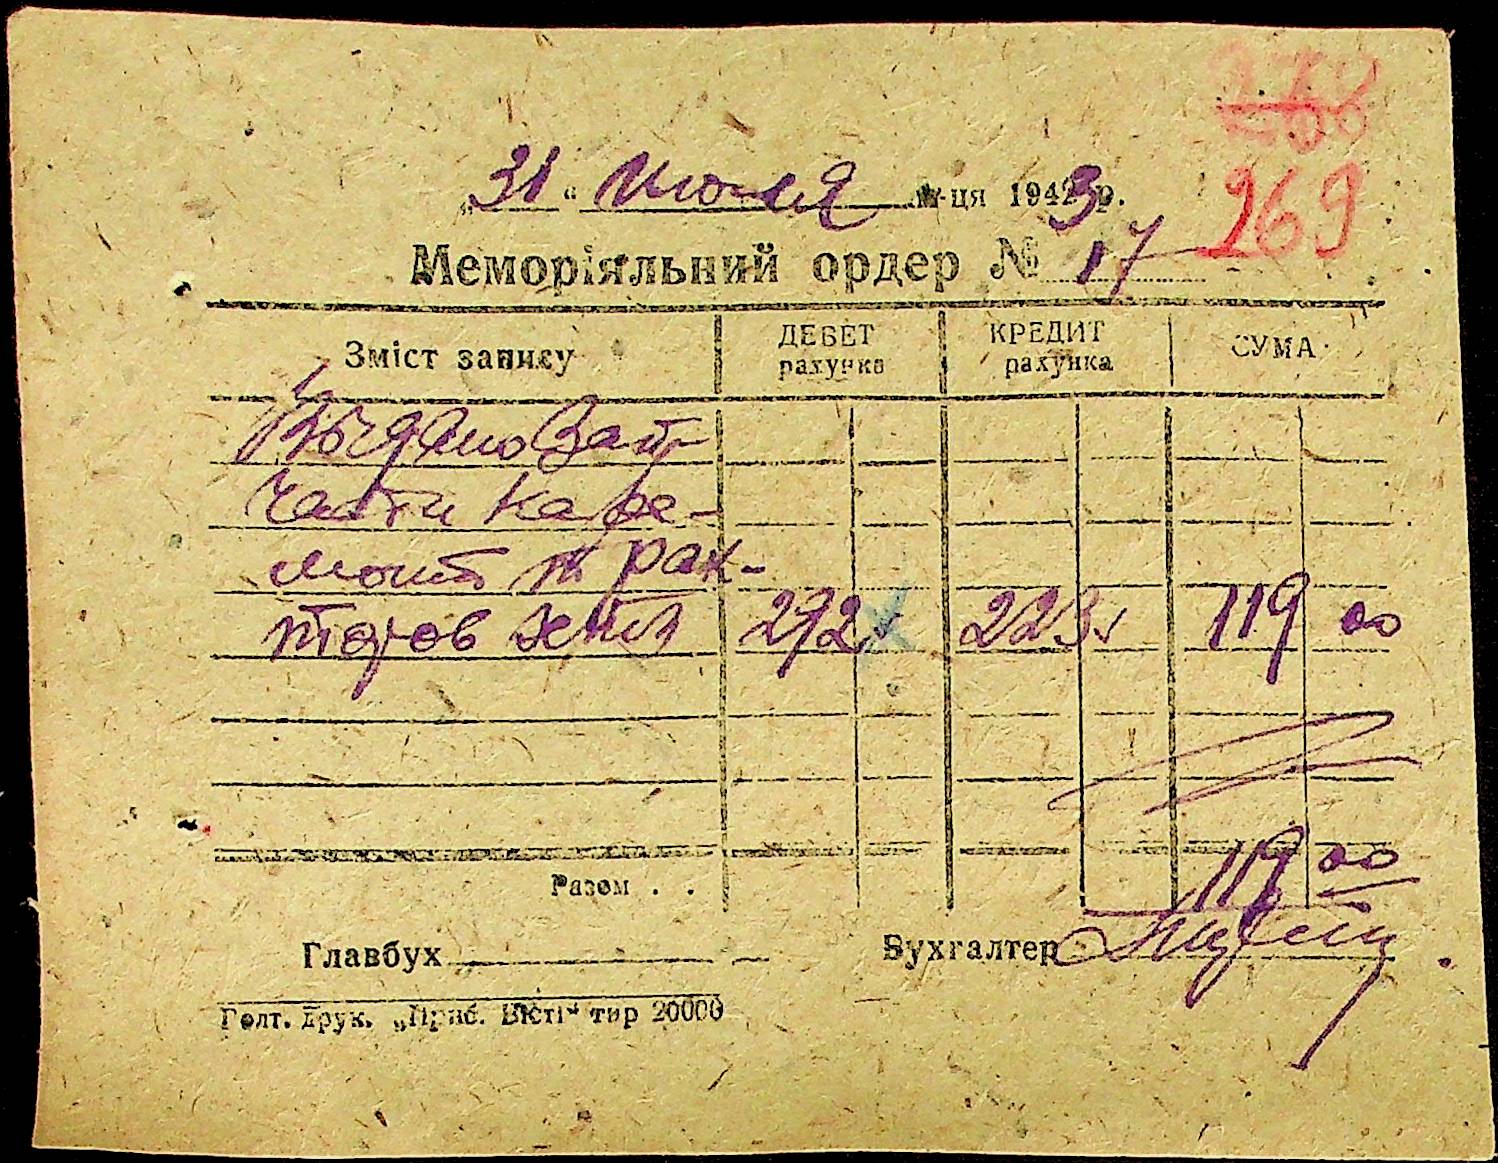 269
„31“ Июля м-ця 1943 р.
Меморіяльний ордер № 17
Зміст запису ДЕБЕТ рахунка КРЕДИТ рахунка СУМА
Выдано Зап-
части на ре-
монт трак-
торов 292 223 119 00
Разом . . 119 00
Главбух Бухгалтер
Голт. Друк. „Приб. Вісті“ тир 20000